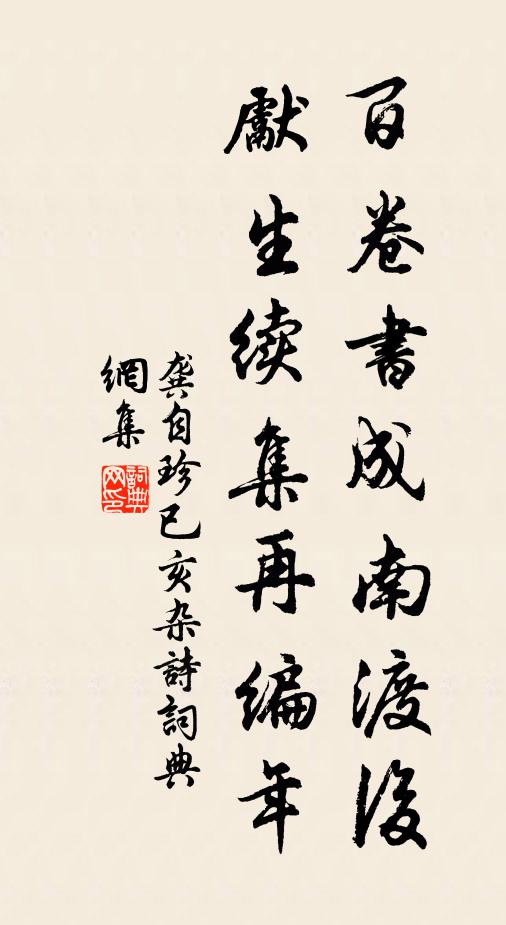 百卷書成南渡後
獻生续集再编年
龚自珍己亥杂詩詞典
網集
詞典
网印